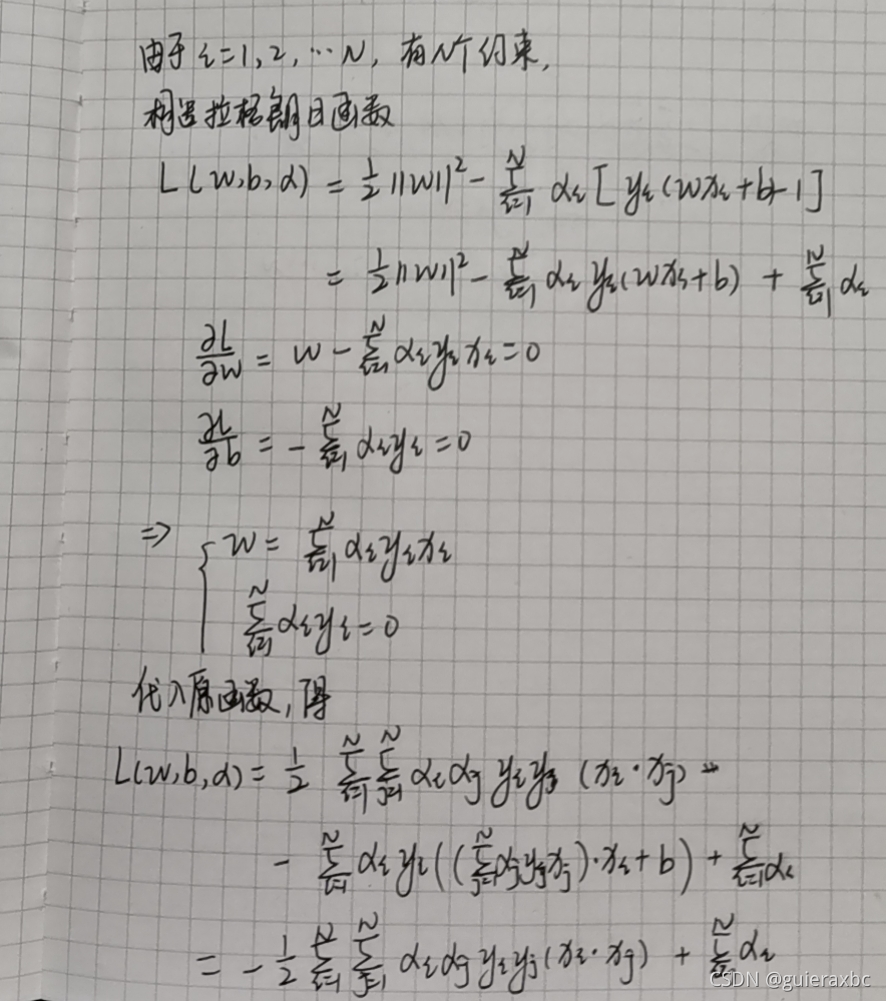 由于 i=1,2,…N, 有N个约束,
构造拉格朗日函数
L(w,b,α) = ½||w||² - ∑_{i=1}^{N} α_i [y_i(wx_i+b)-1]
= ½||w||² - ∑_{i=1}^{N} α_i y_i(wx_i+b) + ∑_{i=1}^{N} α_i
∂L/∂w = w - ∑_{i=1}^{N} α_i y_i x_i = 0
∂L/∂b = - ∑_{i=1}^{N} α_i y_i = 0
⇒ { w = ∑_{i=1}^{N} α_i y_i x_i
∑_{i=1}^{N} α_i y_i = 0
代入原函数,得
L(w,b,α) = ½ ∑_{i=1}^{N} ∑_{j=1}^{N} α_i α_j y_i y_j (x_i·x_j) -
- ∑_{i=1}^{N} α_i y_i((∑_{j=1}^{N} α_j y_j x_j)·x_i+b) + ∑_{i=1}^{N} α_i
= -½ ∑_{i=1}^{N} ∑_{j=1}^{N} α_i α_j y_i y_j (x_i·x_j) + ∑_{i=1}^{N} α_i
CSDN @guieraxbc